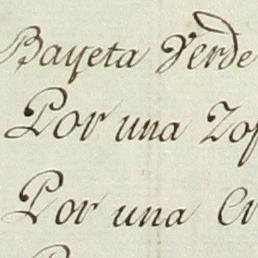 Bayeta Verde
Por una Zop
Por una Cr